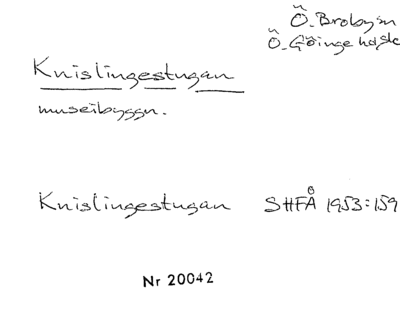 Ö. Broby sn
Ö. Göinge hd Sk
Knislingestugan
museibyggn.
Knislingestugan SHFÅ 1953:159
Nr 20042